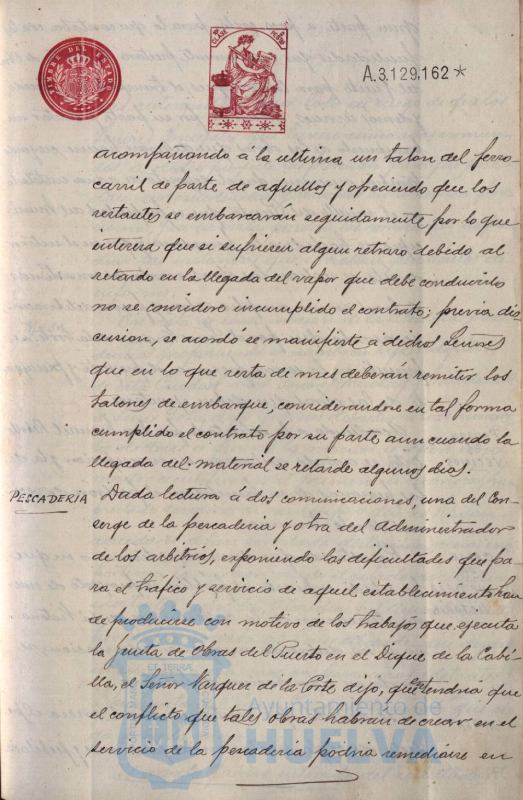 TIMBRE DEL ESTADO
CLASE
A.3.129.162*
acompañando á la ultima un talon del ferro-
carril de parte de aquellos y ofreciendo que los
restantes se embarcarán seguidamente por lo que
interesa que si sufriesen algun retraso debido al
retardo en la llegada del vapor que debe conducirlos
no se considere incumplido el contrato; previa dis-
cusion, se acordó se manifieste á dichos Señores
que en lo que resta de mes deberán remitir los
talones de embarque, considerandose en tal forma
cumplido el contrato por su parte aun cuando la
llegada del material se retarde algunos dias.
PESCADERIA
Dada lectura á dos comunicaciones, una del Con-
serge de la pescaderia y otra del Administrador
de los arbitrios, exponiendo las dificultades que pa-
ra el tráfico y servicio de aquel establecimiento han
de producirse con motivo de los trabajos que ejecuta
la Junta de Obras del Puerto en el Dique de la Cabi-
lla, el Señor Vazquez de la Corte dijo, que tendria que
el conflicto que tales obras habran de crear en el
servicio de la pescaderia podria remediarse en
Ayuntamiento de
HUELVA